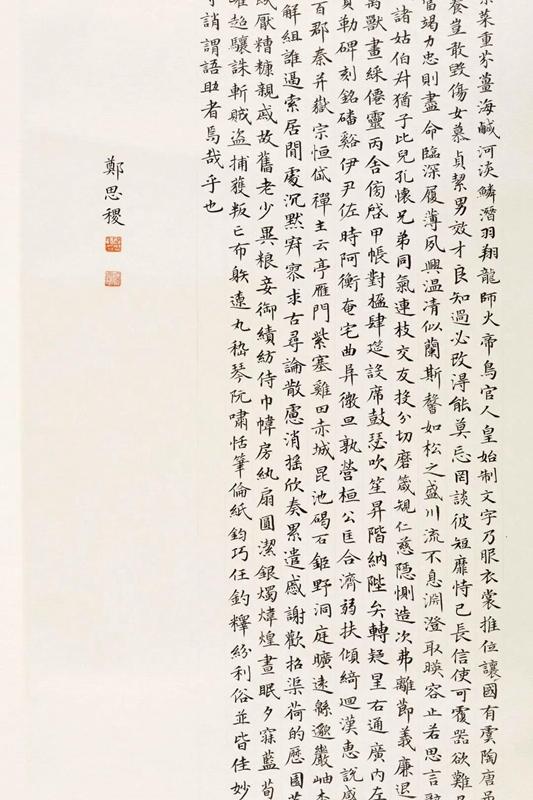 菜重芥薑海鹹河淡鱗潛羽翔龍師火帝鳥官人皇始制文字乃服衣裳推位讓國有虞陶唐
養豈敢毀傷女慕貞絜男效才良知過必改得能莫忘罔談彼短靡恃己長信使可覆器欲難
當竭力忠則盡命臨深履薄夙興溫凊似蘭斯馨如松之盛川流不息淵澄取暎容止若思言辭
諸姑伯叔猶子比兒孔懷兄弟同氣連枝交友投分切磨箴規仁慈隱惻造次弗離節義廉退
禽獸畫綵僊靈丙舍傍啓甲帳對楹肆筵設席鼓瑟吹笙昇階納陛弁轉疑星右通廣內左
實勒碑刻銘磻谿伊尹佐時阿衡奄宅曲阜微旦孰營桓公匡合濟弱扶傾綺迴漢惠說感
百郡秦并嶽宗恒岱禪主云亭雁門紫塞雞田赤城昆池碣石鉅野洞庭曠遠緜邈巖岫
解組誰逼索居閒處沉默寂寥求古尋論散慮消搖欣奏累遣慼謝歡招渠荷的歷園
飢厭糟糠親戚故舊老少異粮妾御績紡侍巾帷房紈扇圓潔銀燭煒煌晝眠夕寐藍筍
躍超驤誅斬賊盜捕獲叛亡布射遼丸嵇琴阮嘯恬筆倫紙鈞巧任釣釋紛利俗並皆佳妙
等誚謂語助者焉哉乎也
鄭思稷